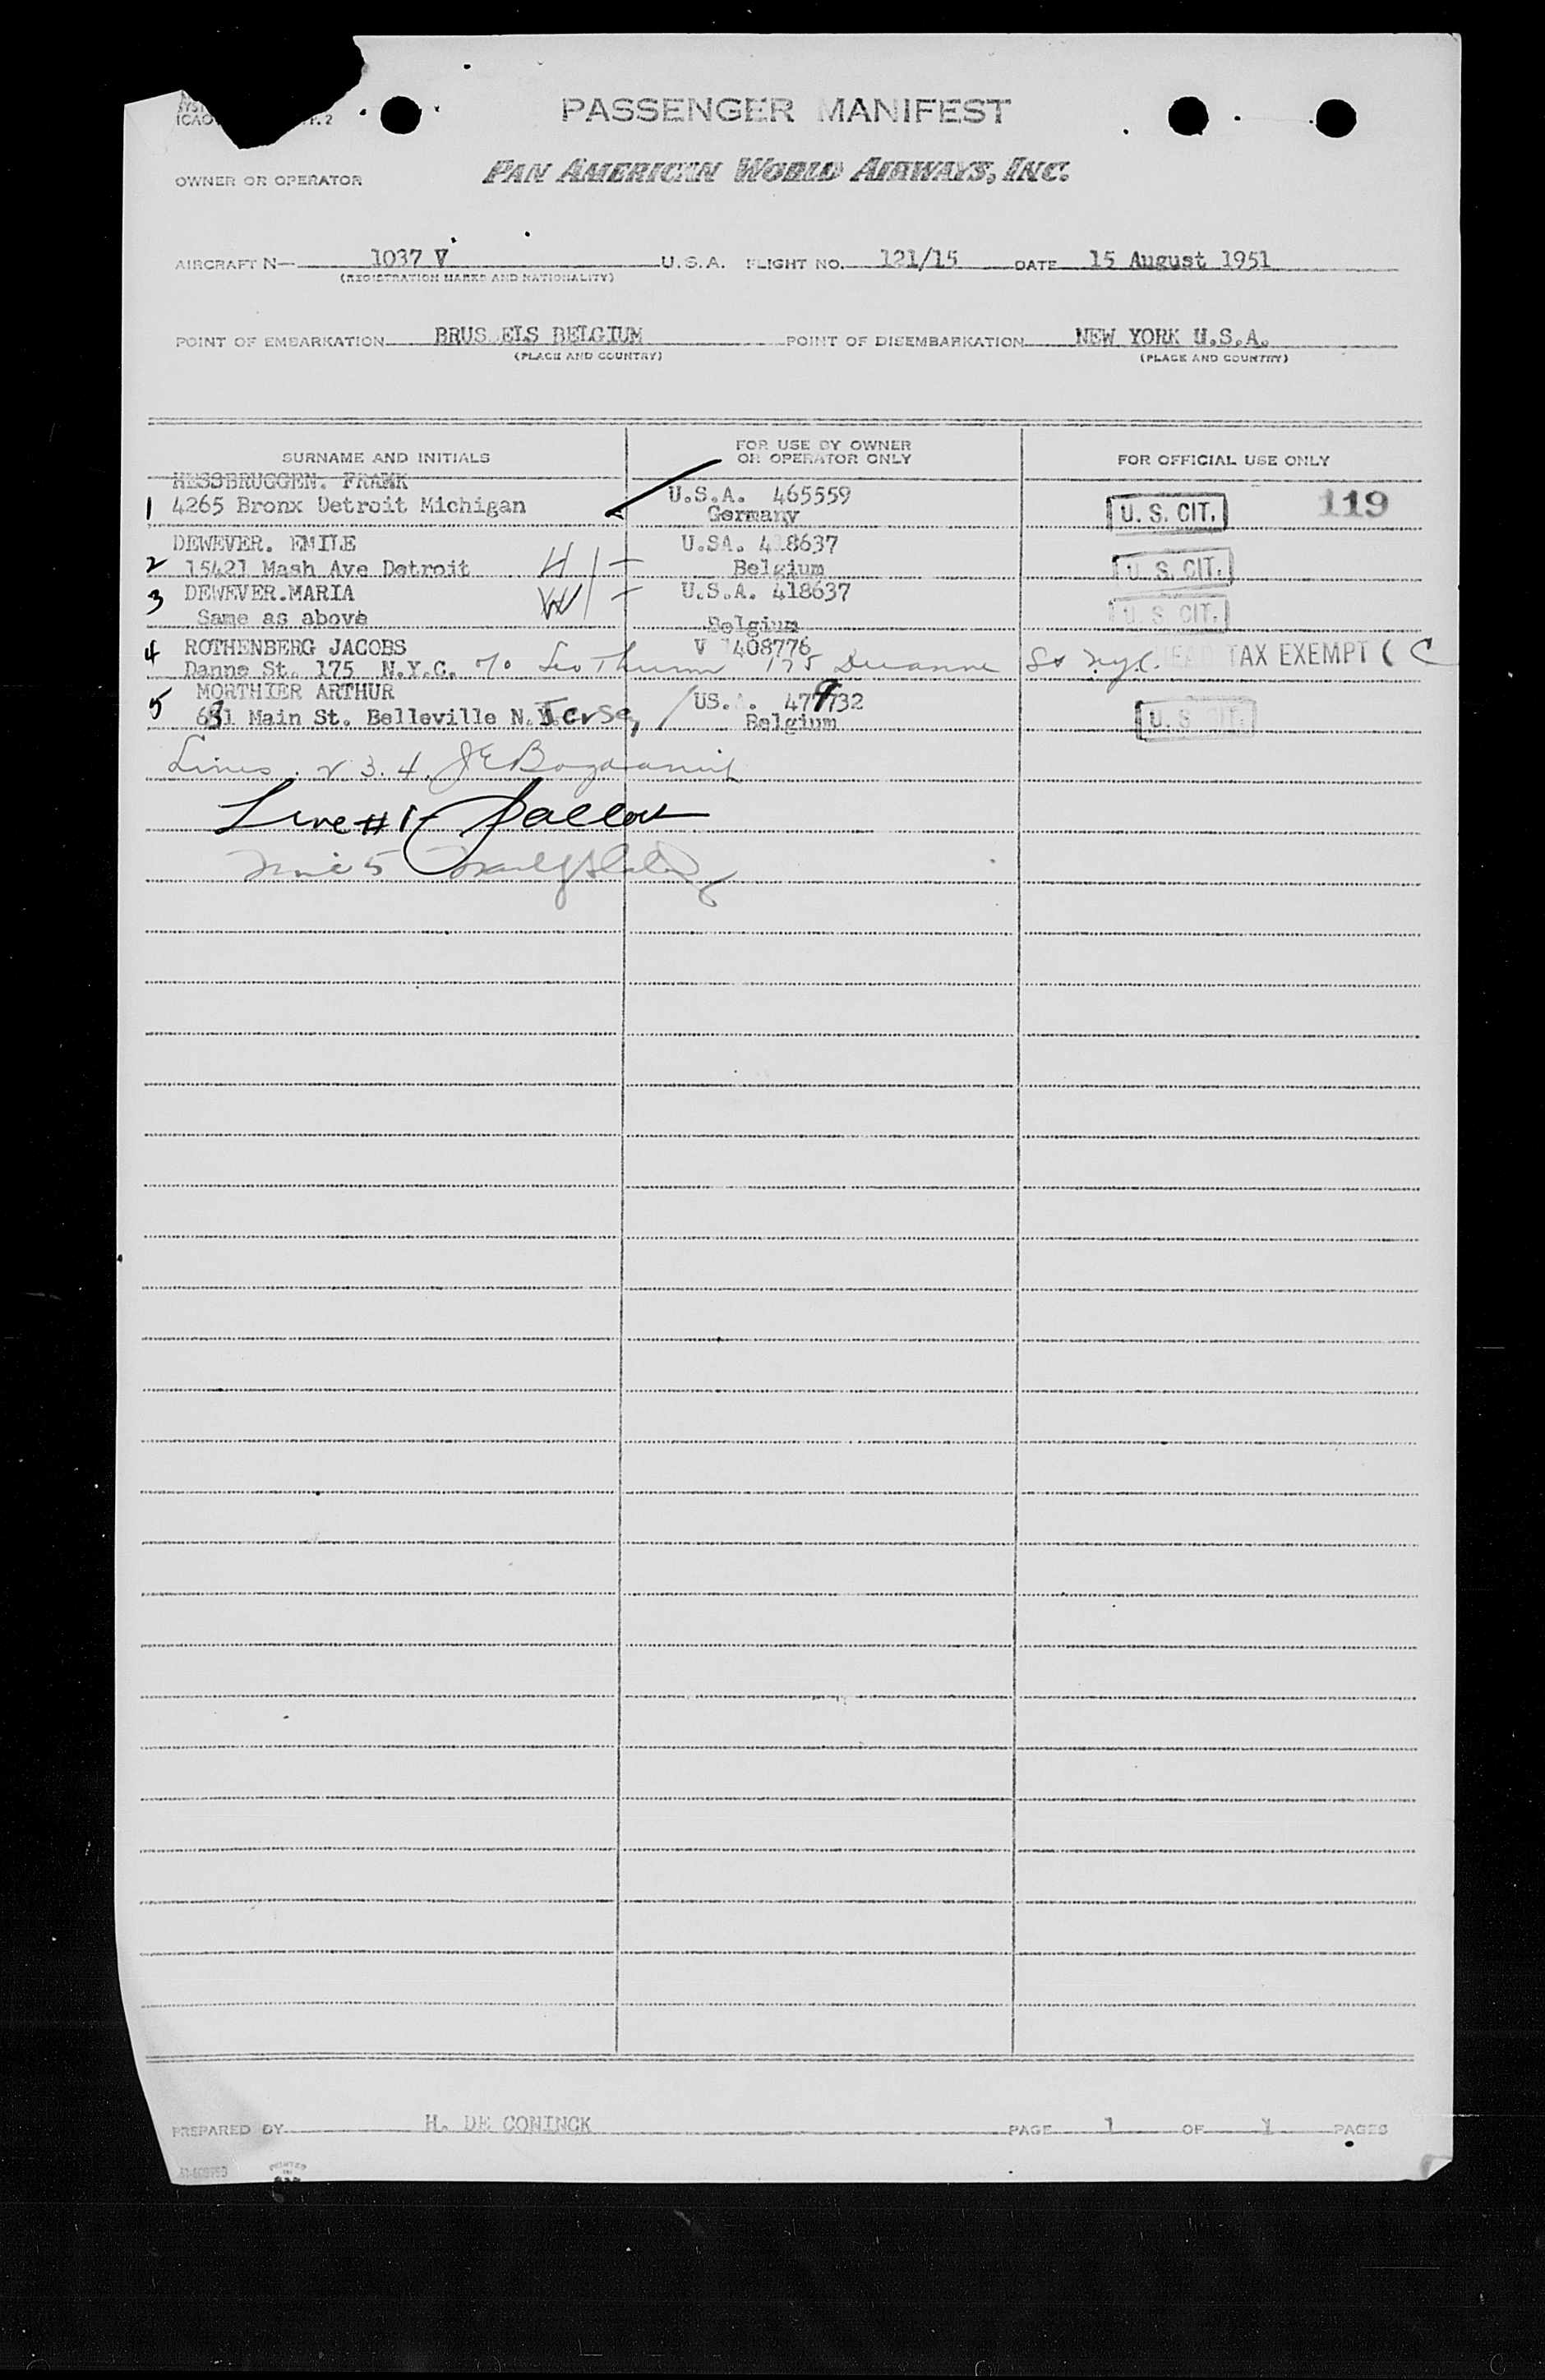 ICAO
PASSENGER MANIFEST
OWNER OR OPERATOR PAN AMERICAN WORLD AIRWAYS, INC.
AIRCRAFT N— 1037 V U.S.A. FLIGHT NO. 121/15 DATE 15 August 1951
(REGISTRATION MARKS AND NATIONALITY)
POINT OF EMBARKATION BRUS ELS BELGIUM POINT OF DISEMBARKATION NEW YORK U.S.A.
(PLACE AND COUNTRY) (PLACE AND COUNTRY)
SURNAME AND INITIALS FOR USE BY OWNER OR OPERATOR ONLY FOR OFFICIAL USE ONLY
HESSBRUGGEN. FRANK
1 4265 Bronx Detroit Michigan U.S.A. 465559 U. S. CIT. 119
Germany
DEWEVER. EMILE U.SA. 4 8637
2 15421 Mash Ave Detroit H Belgium U. S. CIT.
3 DEWEVER.MARIA W U.S.A. 418637
Same as above Belgium U. S. CIT.
4 ROTHENBERG JACOBS V 408776
Danne St. 175 N.Y.C. c/o Leo Thurm 175 Duanne St NYC. HEAD TAX EXEMPT ( C
5 MORTHIER ARTHUR US. . 479732
681 Main St. Belleville N. Jersey Belgium U. S. CIT.
Lines 2 3. 4.
Line #1-
Line 5
PREPARED BY H. DE CONINCK PAGE 1 OF 1 PAGES
PRINTED IN